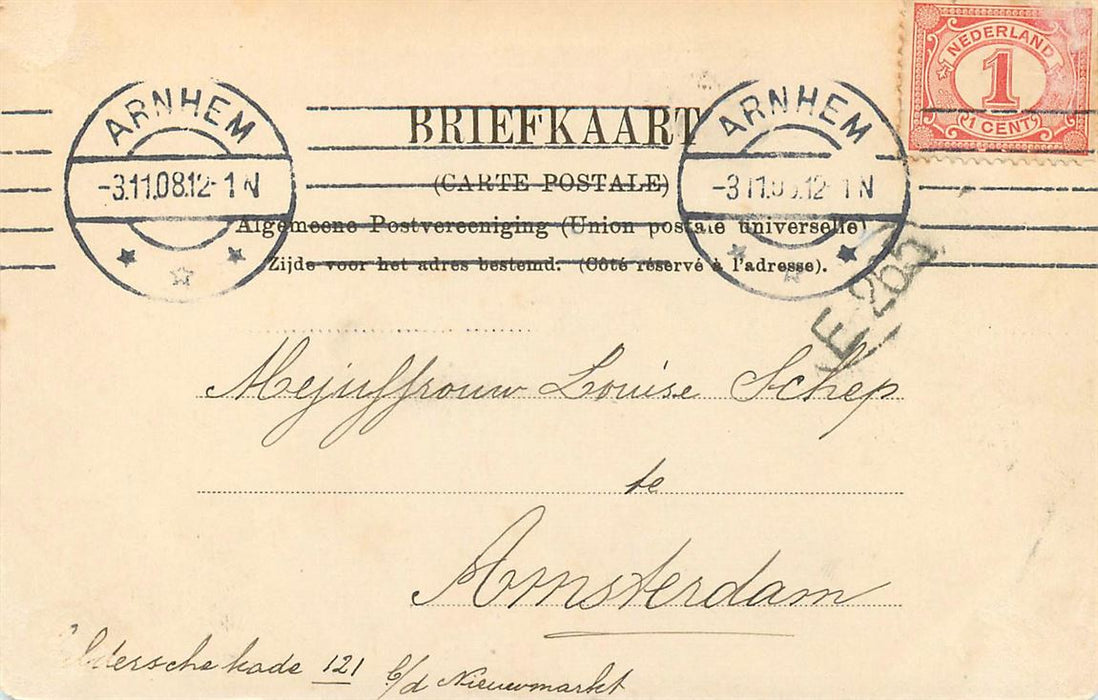 NEDERLAND
1
1 CENT
ARNHEM
-3.11.08.12-1N
BRIEFKAART
(CARTE POSTALE)
ARNHEM
-3.11.08.12-1N
Algemeene Postvereeniging (Union postale universelle)
Zijde voor het adres bestemd. (Côté réservé à l'adresse).
E 265
Mejuffrouw Louise Schep
te
Amsterdam
121 b/d Nieuwmarkt